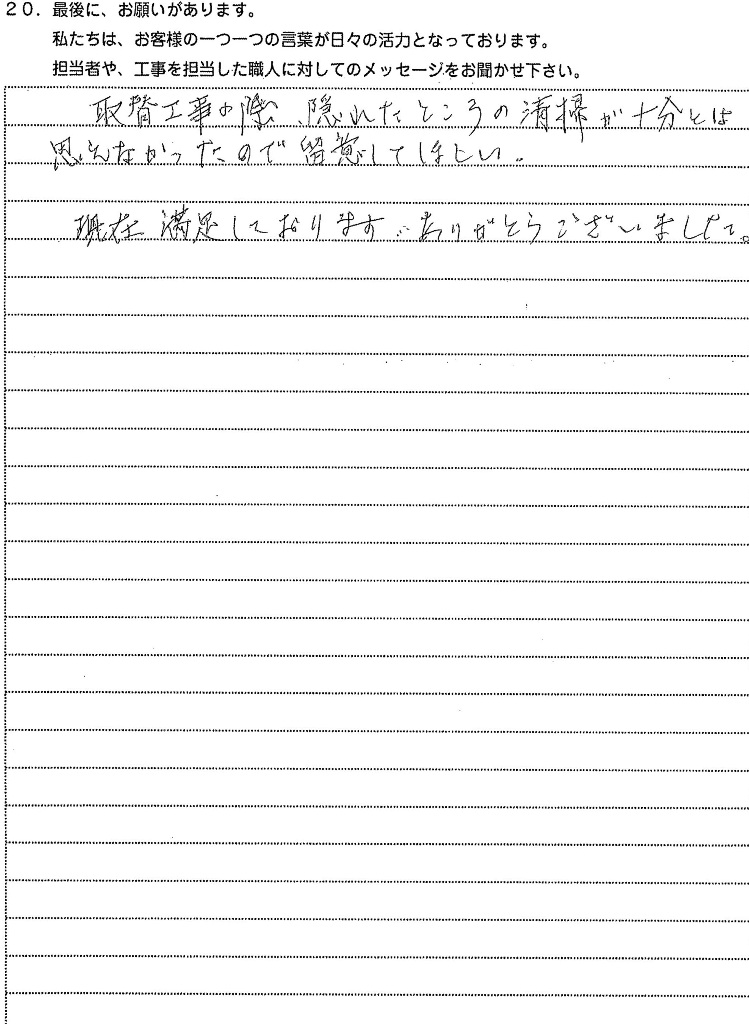 20. 最後に、お願いがあります。
私たちは、お客様の一つ一つの言葉が日々の活力となっております。
担当者や、工事を担当した職人に対してのメッセージをお聞かせ下さい。
取替工事の際、隠れたところの清掃が十分とは
思えなかったので留意してほしい。
現在満足しております。ありがとうございました。